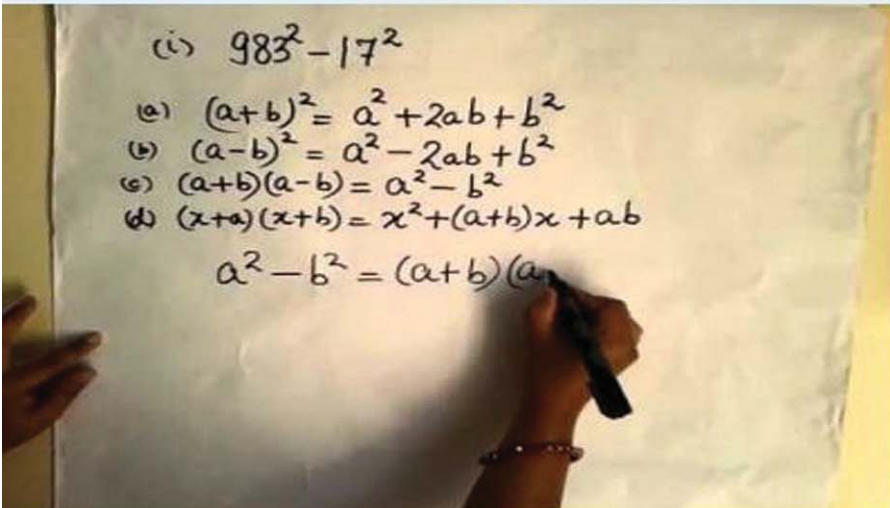 (i) 983² – 17²
(a) (a+b)² = a² + 2ab + b²
(b) (a-b)² = a² - 2ab + b²
(c) (a+b)(a-b) = a² - b²
(d) (x+a)(x+b) = x² + (a+b)x + ab
a² - b² = (a+b)(a